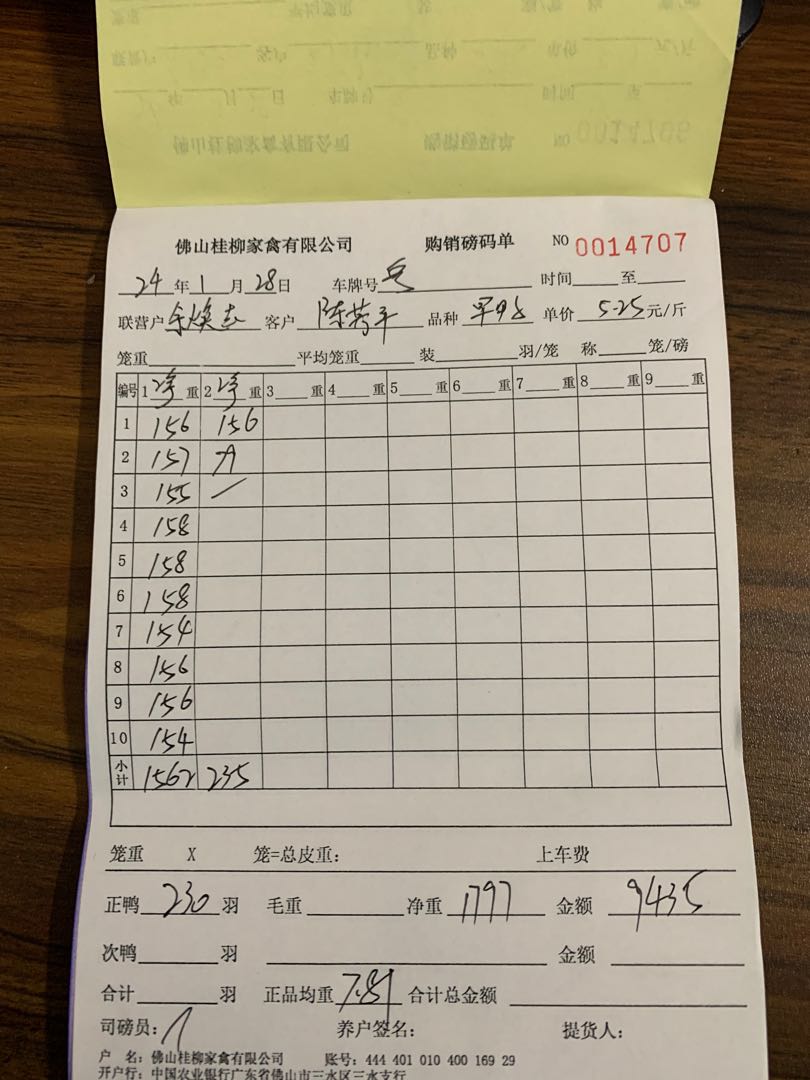 佛山桂柳家禽有限公司 购销磅码单 NO 0014707
24 年 1 月 28 日 车牌号 时间 至
联营户 余焕志 客户 品种 单价 5.25 元/斤
笼重 平均笼重 装 羽/笼 称 笼/磅
编号 1 净 重 2 净 重 3 重 4 重 5 重 6 重 7 重 8 重 9 重
1 156 156
2 157 79
3 155
4 158
5 158
6 158
7 154
8 156
9 156
10 154
小计 1562 235
笼重 X 笼=总皮重: 上车费
正鸭 230 羽 毛重 净重 1797 金额 9435
次鸭 羽 金额
合计 羽 正品均重 7.81 合计总金额
司磅员: 养户签名: 提货人:
户 名: 佛山桂柳家禽有限公司 账号: 444 401 010 400 169 29
开户行: 中国农业银行广东省佛山市三水区三水支行